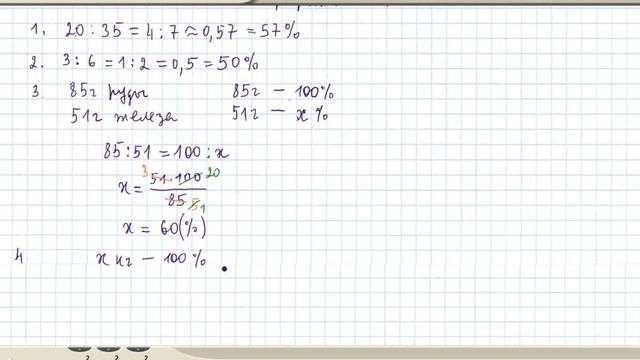 1. 20 : 35 = 4 : 7 ≈ 0,57 = 57%
2. 3 : 6 = 1 : 2 = 0,5 = 50%
3. 85г руды 85г — 100%
51г железа 51г — x%
85 : 51 = 100 : x
x = 3 51 · 100 20 / 85 5 1
x = 60(%)
4. x кг — 100%